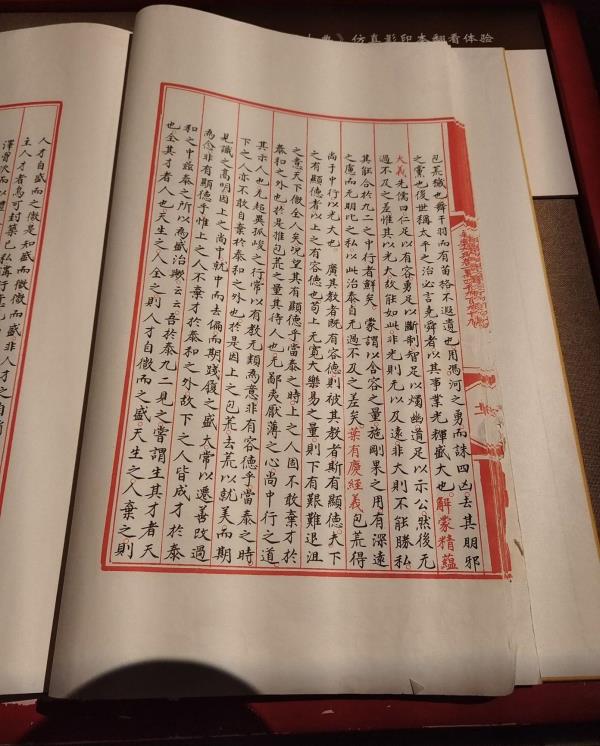 典》仿真影印本翻看体验
包荒織也舜干羽而有苗格不遐遺也用馮河之勇而誅四凶去其朋邪
之黨也後世稱太平之治必言堯舜者以其事業光輝盛大也解蒙精蘊
大義先儒曰仁足以有容勇足以斷制智足以燭幽遺足以示公然後无
過不及之差惟其以光大故能如此非光則无以及遠非大則不能勝私
其能合於九二之中行者鮮矣蒙謂以含容之量施剛果之用有深遠
之慮而无朋比之私以此治泰自无過不及之差矣葉有慶經義包荒得
尚于中行以光大也 廣其教者既有容德則被其教者斯有顯德夫下
之有顯德者以上之有容德也苟上无寬大樂易之量則下有艱難退沮
之意天下㒒全人矣况望其有顯德乎當泰之時上之人固不敢棄才於
泰和之外也於是推包荒之量其待人也无鄙夷厭薄之心尚中行之道
其示人也无超異孤峻之行常以有教无類為意非有容德乎當泰之時
下之人亦不敢自棄於泰和之外也於是因上之包荒去荒以就美而期
見識之高明因上之尚中就中而去偏而期踐履之盛大常以遷善改過
為念非有顯德乎惟上之人不棄才於泰和之外故下之人皆成才於泰
和之中茲泰之所以為盛治歟云云吾於泰九二見之嘗謂生其才者天
也全其才者人也天生之人全之則人才自微而之盛天生之人棄之則
人才自盛而之微是知盛而微微而盛非人才之自
主人才者烏可封